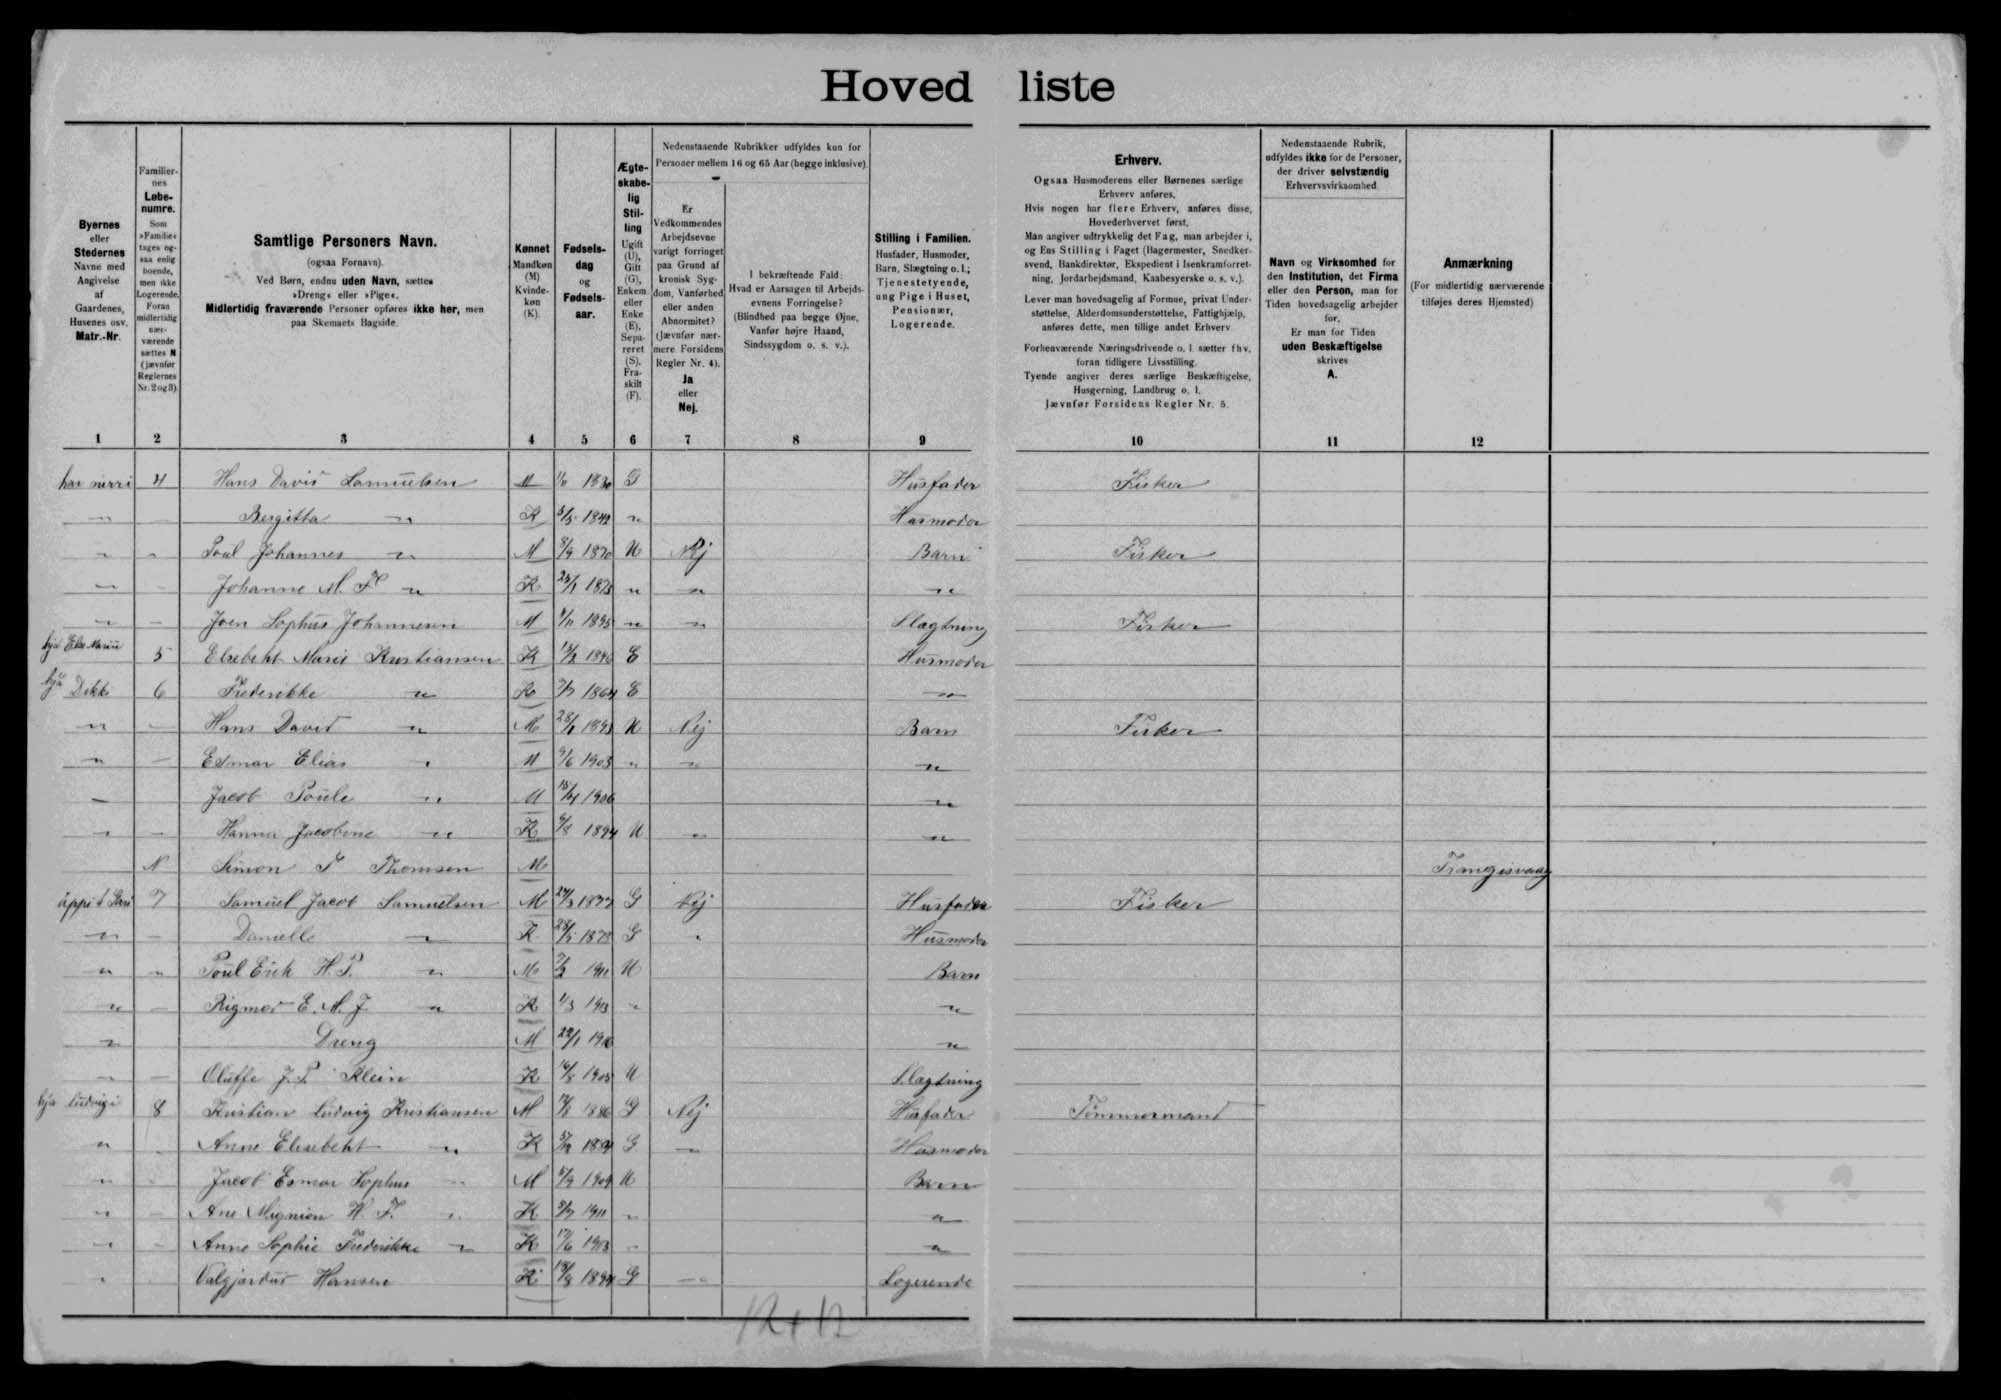 Hoved liste
Byernes
eller
Stedernes
Navne med
Angivelse
af
Gaardenes,
Husenes osv.
Matr.-Nr.
Familier-
nes
Løbe-
numre.
Som
»Familie«
tages og-
saa enlig
boende,
men ikke
Logerende.
Foran
midlertidig
nær-
værende
sættes N
(jævnfør
Reglernes
Nr. 2 og 3).
Samtlige Personers Navn.
(ogsaa Fornavn).
Ved Børn, endnu uden Navn, sættes
»Dreng« eller »Pige«.
Midlertidig fraværende Personer opføres ikke her, men
paa Skemaets Bagside.
Kønnet
Mandkøn
(M)
Kvinde-
køn
(K).
Fødsels-
dag
og
Fødsels-
aar.
Ægte-
skabe-
lig
Stil-
ling
Ugift
(U),
Gift
(G),
Enkem.
eller
Enke
(E),
Sepa-
reret
(S).
Fra-
skilt
(F).
Nedenstaaende Rubrikker udfyldes kun for
Personer mellem 16 og 65 Aar (begge inklusive).
Er
Vedkommendes
Arbejdsevne
varigt forringet
paa Grund af
kronisk Syg-
dom, Vanførhed
eller anden
Abnormitet?
(Jævnfør nær-
mere Forsidens
Regler Nr. 4).
Ja
eller
Nej.
I bekræftende Fald:
Hvad er Aarsagen til Arbejds-
evnens Forringelse?
(Blindhed paa begge Øjne,
Vanfør højre Haand,
Sindssygdom o. s. v.).
Stilling i Familien.
Husfader, Husmoder,
Barn, Slægtning o. l.;
Tjenestetyende,
ung Pige i Huset,
Pensionær,
Logerende.
Erhverv.
Ogsaa Husmoderens eller Børnenes særlige
Erhverv anføres,
Hvis nogen har flere Erhverv, anføres disse,
Hovederhvervet først,
Man angiver udtrykkelig det Fag, man arbejder i,
og Ens Stilling i Faget (Bagermester, Snedker-
svend, Bankdirektør, Ekspedient i Isenkramforret-
ning, Jordarbejdsmand, Kaabesyerske o. s. v.).
Lever man hovedsagelig af Formue, privat Under-
støttelse, Alderdomsunderstøttelse, Fattighjælp,
anføres dette, men tillige andet Erhverv
Forhenværende Næringsdrivende o. l. sætter fhv.
foran tidligere Livsstilling.
Tyende angiver deres særlige Beskæftigelse,
Husgerning, Landbrug o. l.
Jævnfør Forsidens Regler Nr. 5.
Nedenstaaende Rubrik,
udfyldes ikke for de Personer,
der driver selvstændig
Erhvervsvirksomhed.
Navn og Virksomhed for
den Institution, det Firma
eller den Person, man for
Tiden hovedsagelig arbejder
for.
Er man for Tiden
uden Beskæftigelse
skrives
A.
Anmærkning
(For midlertidig nærværende
tilføjes deres Hjemsted)
1 2 3 4 5 6 7 8 9 10 11 12
har nirri 4 Hans David Samuelsen M 1830 G Husfader Fisker
Bergitta " K 1842 " Husmoder
" " Poul Johannes " M 8/9 1870 U Nej Barn Fisker
" Johanne M. F " K 1875 " " "
" Joen Sophus Johannesen M 1895 " " Slægtning Fisker
hjá Else Mariu 5 Elsebeht Marie Kristiansen K 1846 E Husmoder
hjá Dikki 6 Frederikke " K 1864 E "
" Hans David " M U Nej Barn Fisker
" Esmar Elias " M 9/6 1903 " " "
Jacob Poule " M 1906 "
" Hanna Jacobine " K 1894 U " "
N Simon P Thomsen M Trangisvaag
uppi á 7 Samuel Jacob Samuelsen M 1877 G Nej Husfader Fisker
" Danielle " K 1878 G " Husmoder
" " Poul Erik H. P. " M 1911 U Barn
" Rigmor E. M. J. " K 1/3 1913 " "
" Dreng M "
Oluffe J. P. Klein K 1905 U Slægtning
hjá Ludvigi 8 Kristian Ludvig Kristiansen M 1886 G Nej Husfader Tømmermand
" Anne Elsebeht " K 1884 G " Husmoder
" Jacob Esmar Sophus " M 1909 U Barn
" Ane Mignion H. F. " K 1911 " "
" Anne Sophie Frederikke " K 1913 " "
" Valgjerdur Hansen K 1894 G " Logerende
12+12